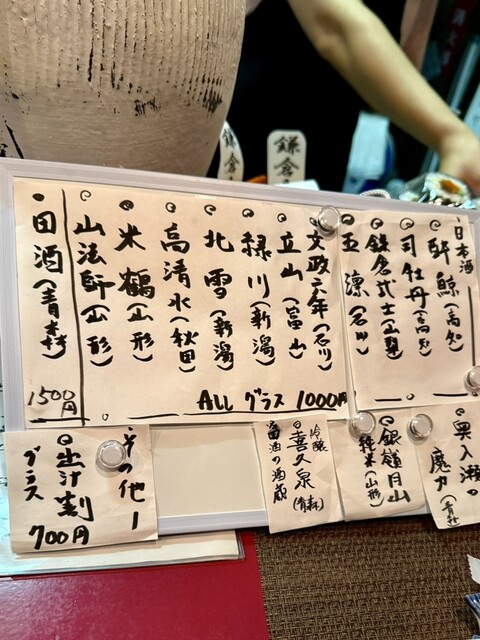 鎌倉
鎌倉
・日本酒
酔鯨(高知)
司牡丹(高知)
鎌倉武士(山梨)
五凛(石川)
文政六年(石川)
立山(富山)
緑川(新潟)
北雪(新潟)
高清水(秋田)
米鶴(山形)
山法師(山形)
ALL グラス 1000円
・田酒(青森)
1500円
奥入瀬の
魔力(青森)
銀嶺月山
純米(山形)
吟醸
喜久泉(青森)
田酒の酒蔵
・その他ー
出汁割
グラス
700円